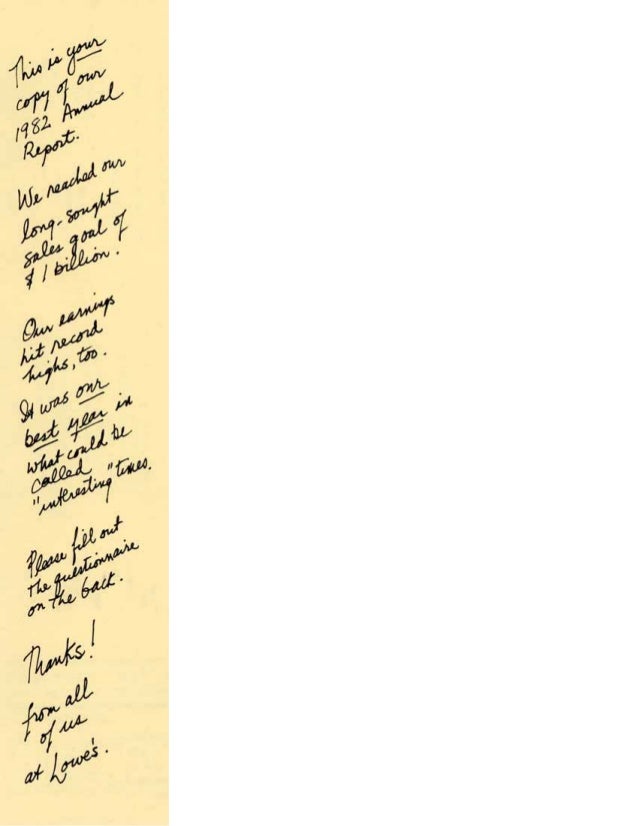 This is your
copy of our
1982 Annual
Report.
We reached our
long-sought
sales goal of
$1 billion.
Our earnings
hit record
highs, too.
It was our
best year in
what could be
called
"interesting" times.
Please fill out
the questionnaire
on the back.
Thanks!
from all
of us
at Lowe's.